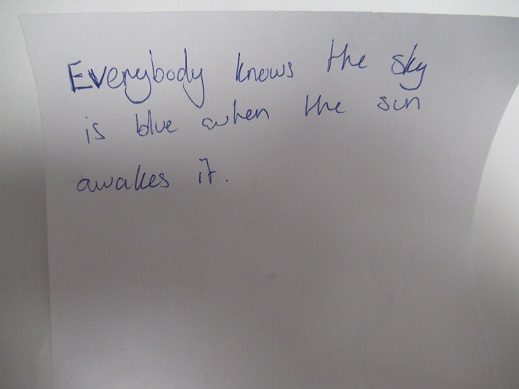 Everybody knows the sky
is blue when the sun
awakes it.